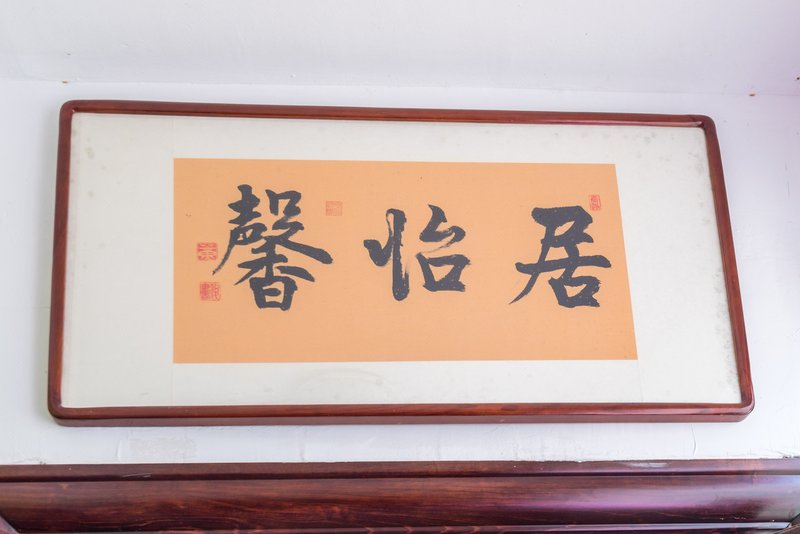 居怡馨